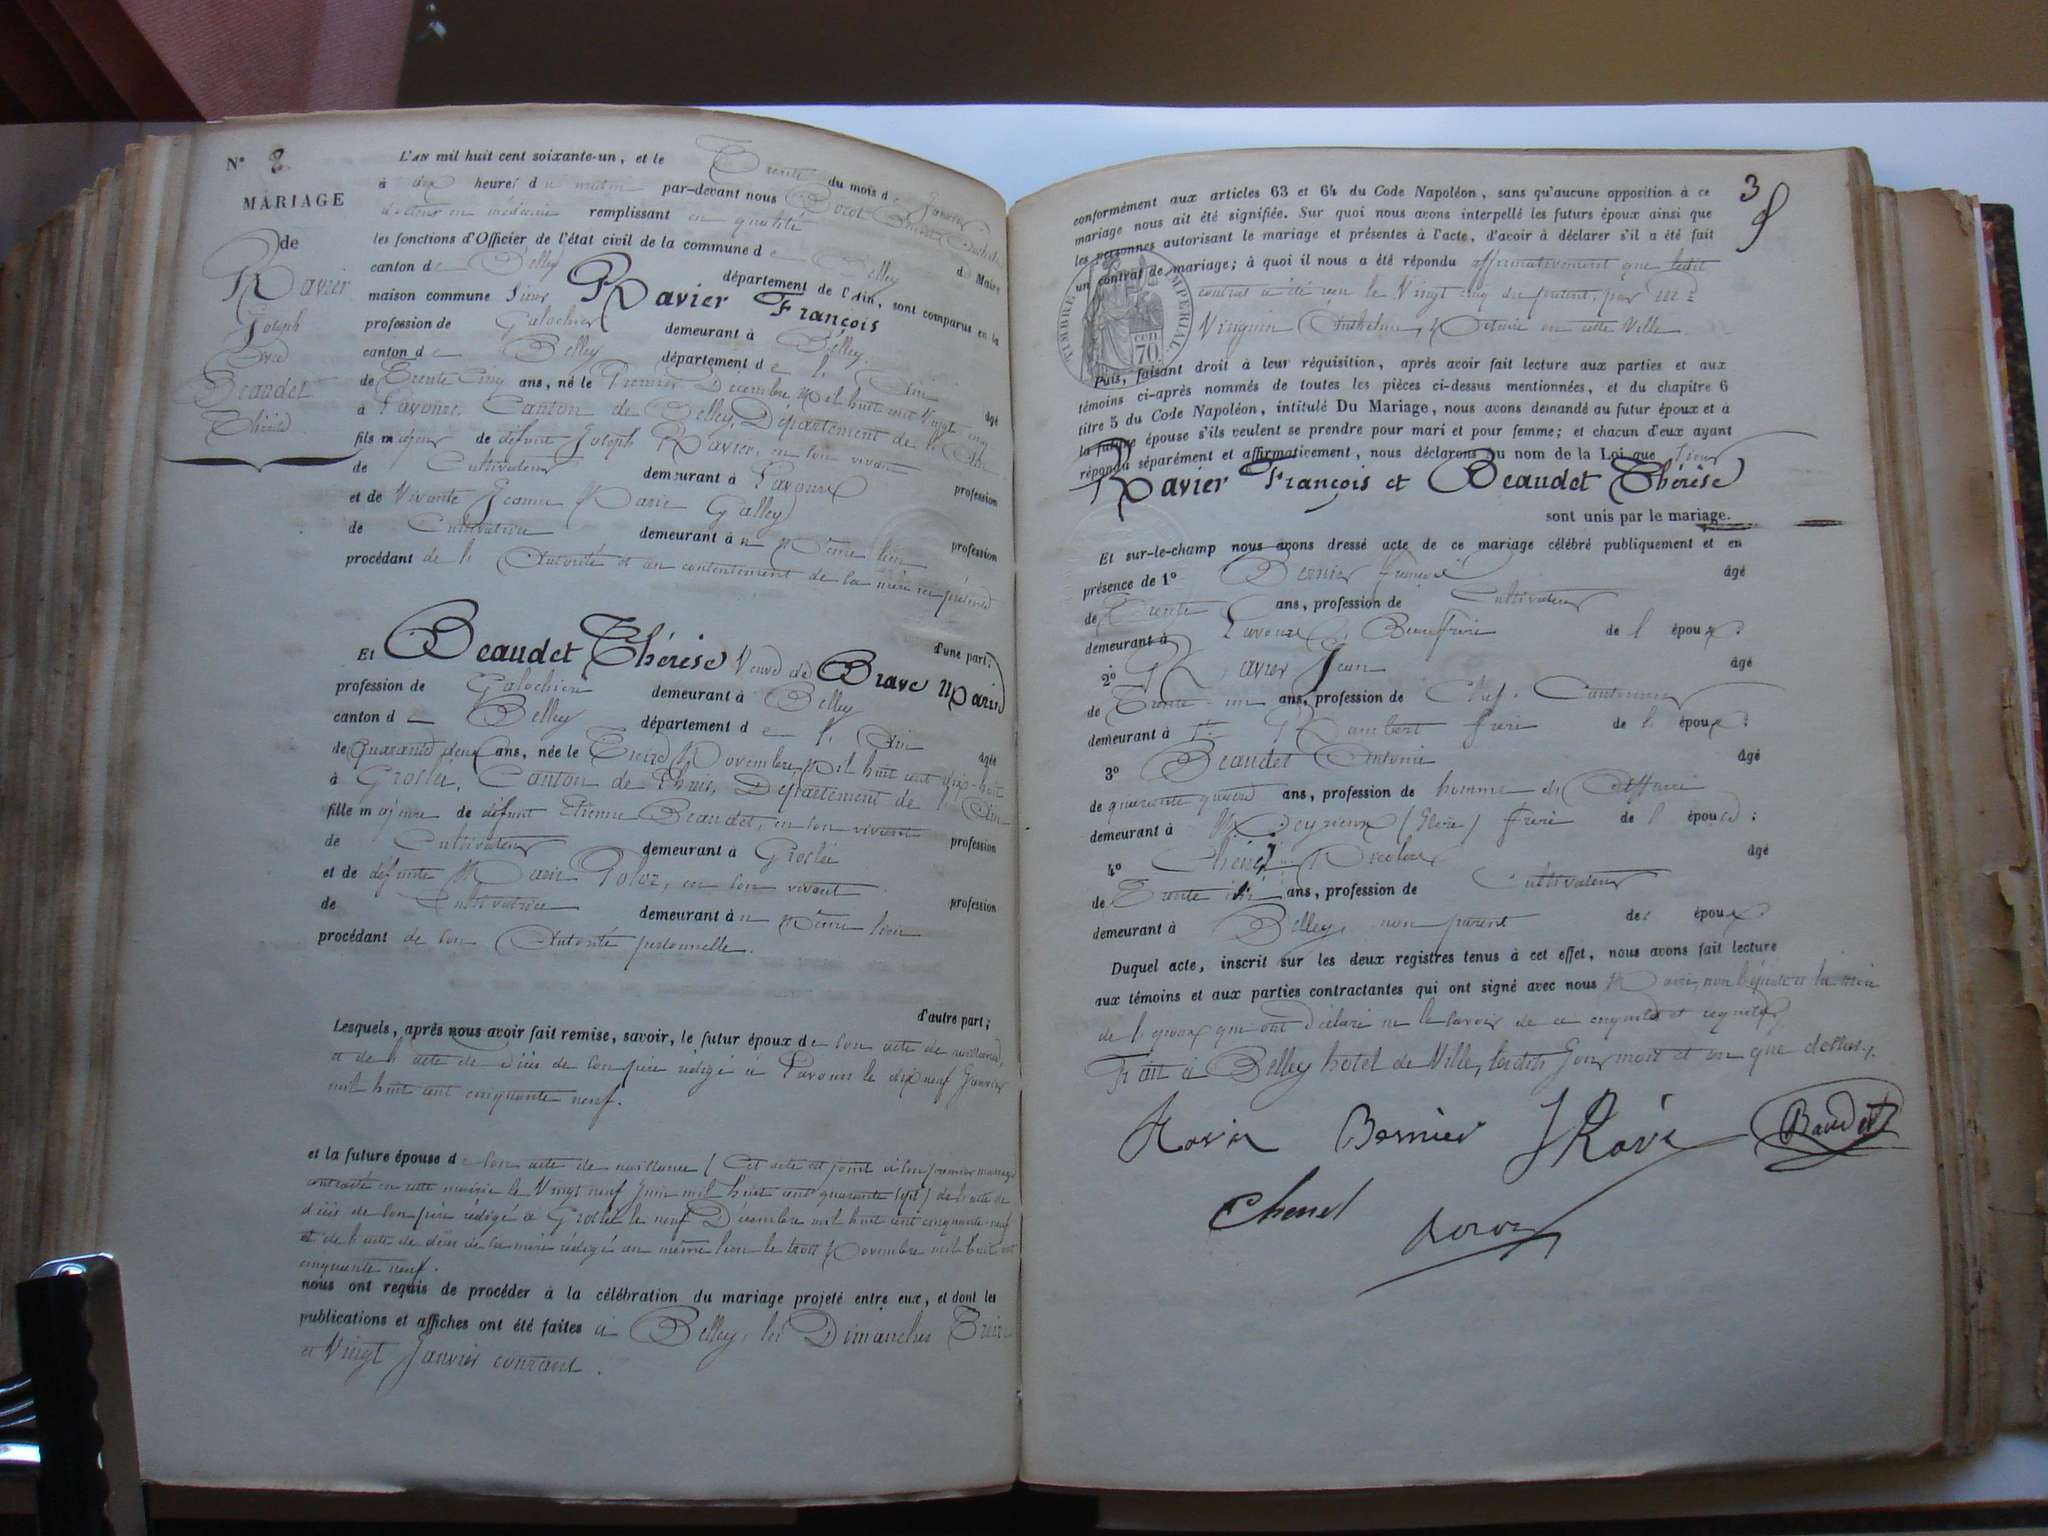 N° 8
MARIAGE
de
Ravier
Joseph
Beaudet
Thérèse
L'AN mil huit cent soixante-un, et le Trente du mois de Janvier
à dix heures du matin par-devant nous
docteur en médecine remplissant en qualité de Maire
les fonctions d'Officier de l'état civil de la commune de Belley
canton de Belley département de l'Ain, sont comparus en la
maison commune Sieur Ravier François
profession de Galochier demeurant à Belley
canton de Belley département de l'Ain âgé
de Trente Cinq ans, né le Premier Décembre Mil huit cent Vingt cinq
à Lavours, Canton de Belley, Département de l'Ain
fils majeur de défunt Joseph Ravier, en son vivant profession
de Cultivateur demeurant à Lavours
et de Vivante Jeanne Marie Galley profession
de Cultivatrice demeurant au Même lieu
procédant de l'Autorité et au consentement de sa mère ici présente
d'une part;
Et Beaudet Thérèse Veuve de Brave Marin
profession de Galochière demeurant à Belley
canton de Belley département de l'Ain âgée
de quarante deux ans, née le Treize Novembre Mil huit cent dix-huit
à Groslée, Canton de Lhuis, Département de l'Ain
fille majeure de défunt Etienne Beaudet, en son vivant profession
de Cultivateur demeurant à Groslée
et de défunte Marie Poloz, en son vivant profession
de Cultivatrice demeurant au Même lieu
procédant de son Autorité personnelle.
d'autre part;
Lesquels, après nous avoir fait remise, savoir, le futur époux de son acte de naissance,
et de l'acte de décès de son père rédigé à Lavours le dix neuf Janvier
mil huit cent cinquante neuf.
et la future épouse de son acte de naissance (Cet acte est joint à son premier mariage
contracté en cette mairie le Vingt neuf Juin mil huit cent quarante sept) de l'acte de
décès de son père rédigé à Groslée le neuf Décembre mil huit cent cinquante-neuf
et de l'acte de décès de sa mère rédigé au même lieu le trois Novembre mil huit cent
cinquante neuf.
nous ont requis de procéder à la célébration du mariage projeté entre eux, et dont les
publications et affiches ont été faites à Belley, les Dimanches Treize
et Vingt Janvier courant.
3
conformément aux articles 63 et 64 du Code Napoléon, sans qu'aucune opposition à ce
mariage nous ait été signifiée. Sur quoi nous avons interpellé les futurs époux ainsi que
les personnes autorisant le mariage et présentes à l'acte, d'avoir à déclarer s'il a été fait
un contrat de mariage; à quoi il nous a été répondu affirmativement que ledit
contrat a été reçu le Vingt cinq du présent, par Me
Vinguin Anthelme, Notaire en cette Ville
TIMBRE IMPERIAL
70 cen.
Puis, faisant droit à leur réquisition, après avoir fait lecture aux parties et aux
témoins ci-après nommés de toutes les pièces ci-dessus mentionnées, et du chapitre 6
titre 5 du Code Napoléon, intitulé Du Mariage, nous avons demandé au futur époux et à
la future épouse s'ils veulent se prendre pour mari et pour femme; et chacun d'eux ayant
répondu séparément et affirmativement, nous déclarons au nom de la Loi que Sieur
Ravier François et Beaudet Thérèse
sont unis par le mariage.
Et sur-le-champ nous avons dressé acte de ce mariage célébré publiquement et en
présence de 1° Bernier François âgé
de Trente ans, profession de Cultivateur
demeurant à Lavours, Beaufrère de l'époux.
2° Ravier Jean âgé
de Trente-un ans, profession de Chef-Cantonnier
demeurant à St Rambert frère de l'époux;
3° Beaudet Antoine âgé
de quarante quatre ans, profession de homme d'Affaire
demeurant à Meyrieux (Isère) frère de l'épouse;
4° Chenel Nicolas âgé
de Trente six ans, profession de Cultivateur
demeurant à Belley, non parent des époux
Duquel acte, inscrit sur les deux registres tenus à cet effet, nous avons fait lecture
aux témoins et aux parties contractantes qui ont signé avec nous Maire, non l'épouse et la mère
de l'époux qui ont déclaré ne le savoir de ce enquises et requises.
Fait à Belley hotel de Ville, lesdits Jour mois et an que dessus.
Ravier Bernier J Ravié Baudet
Chenel